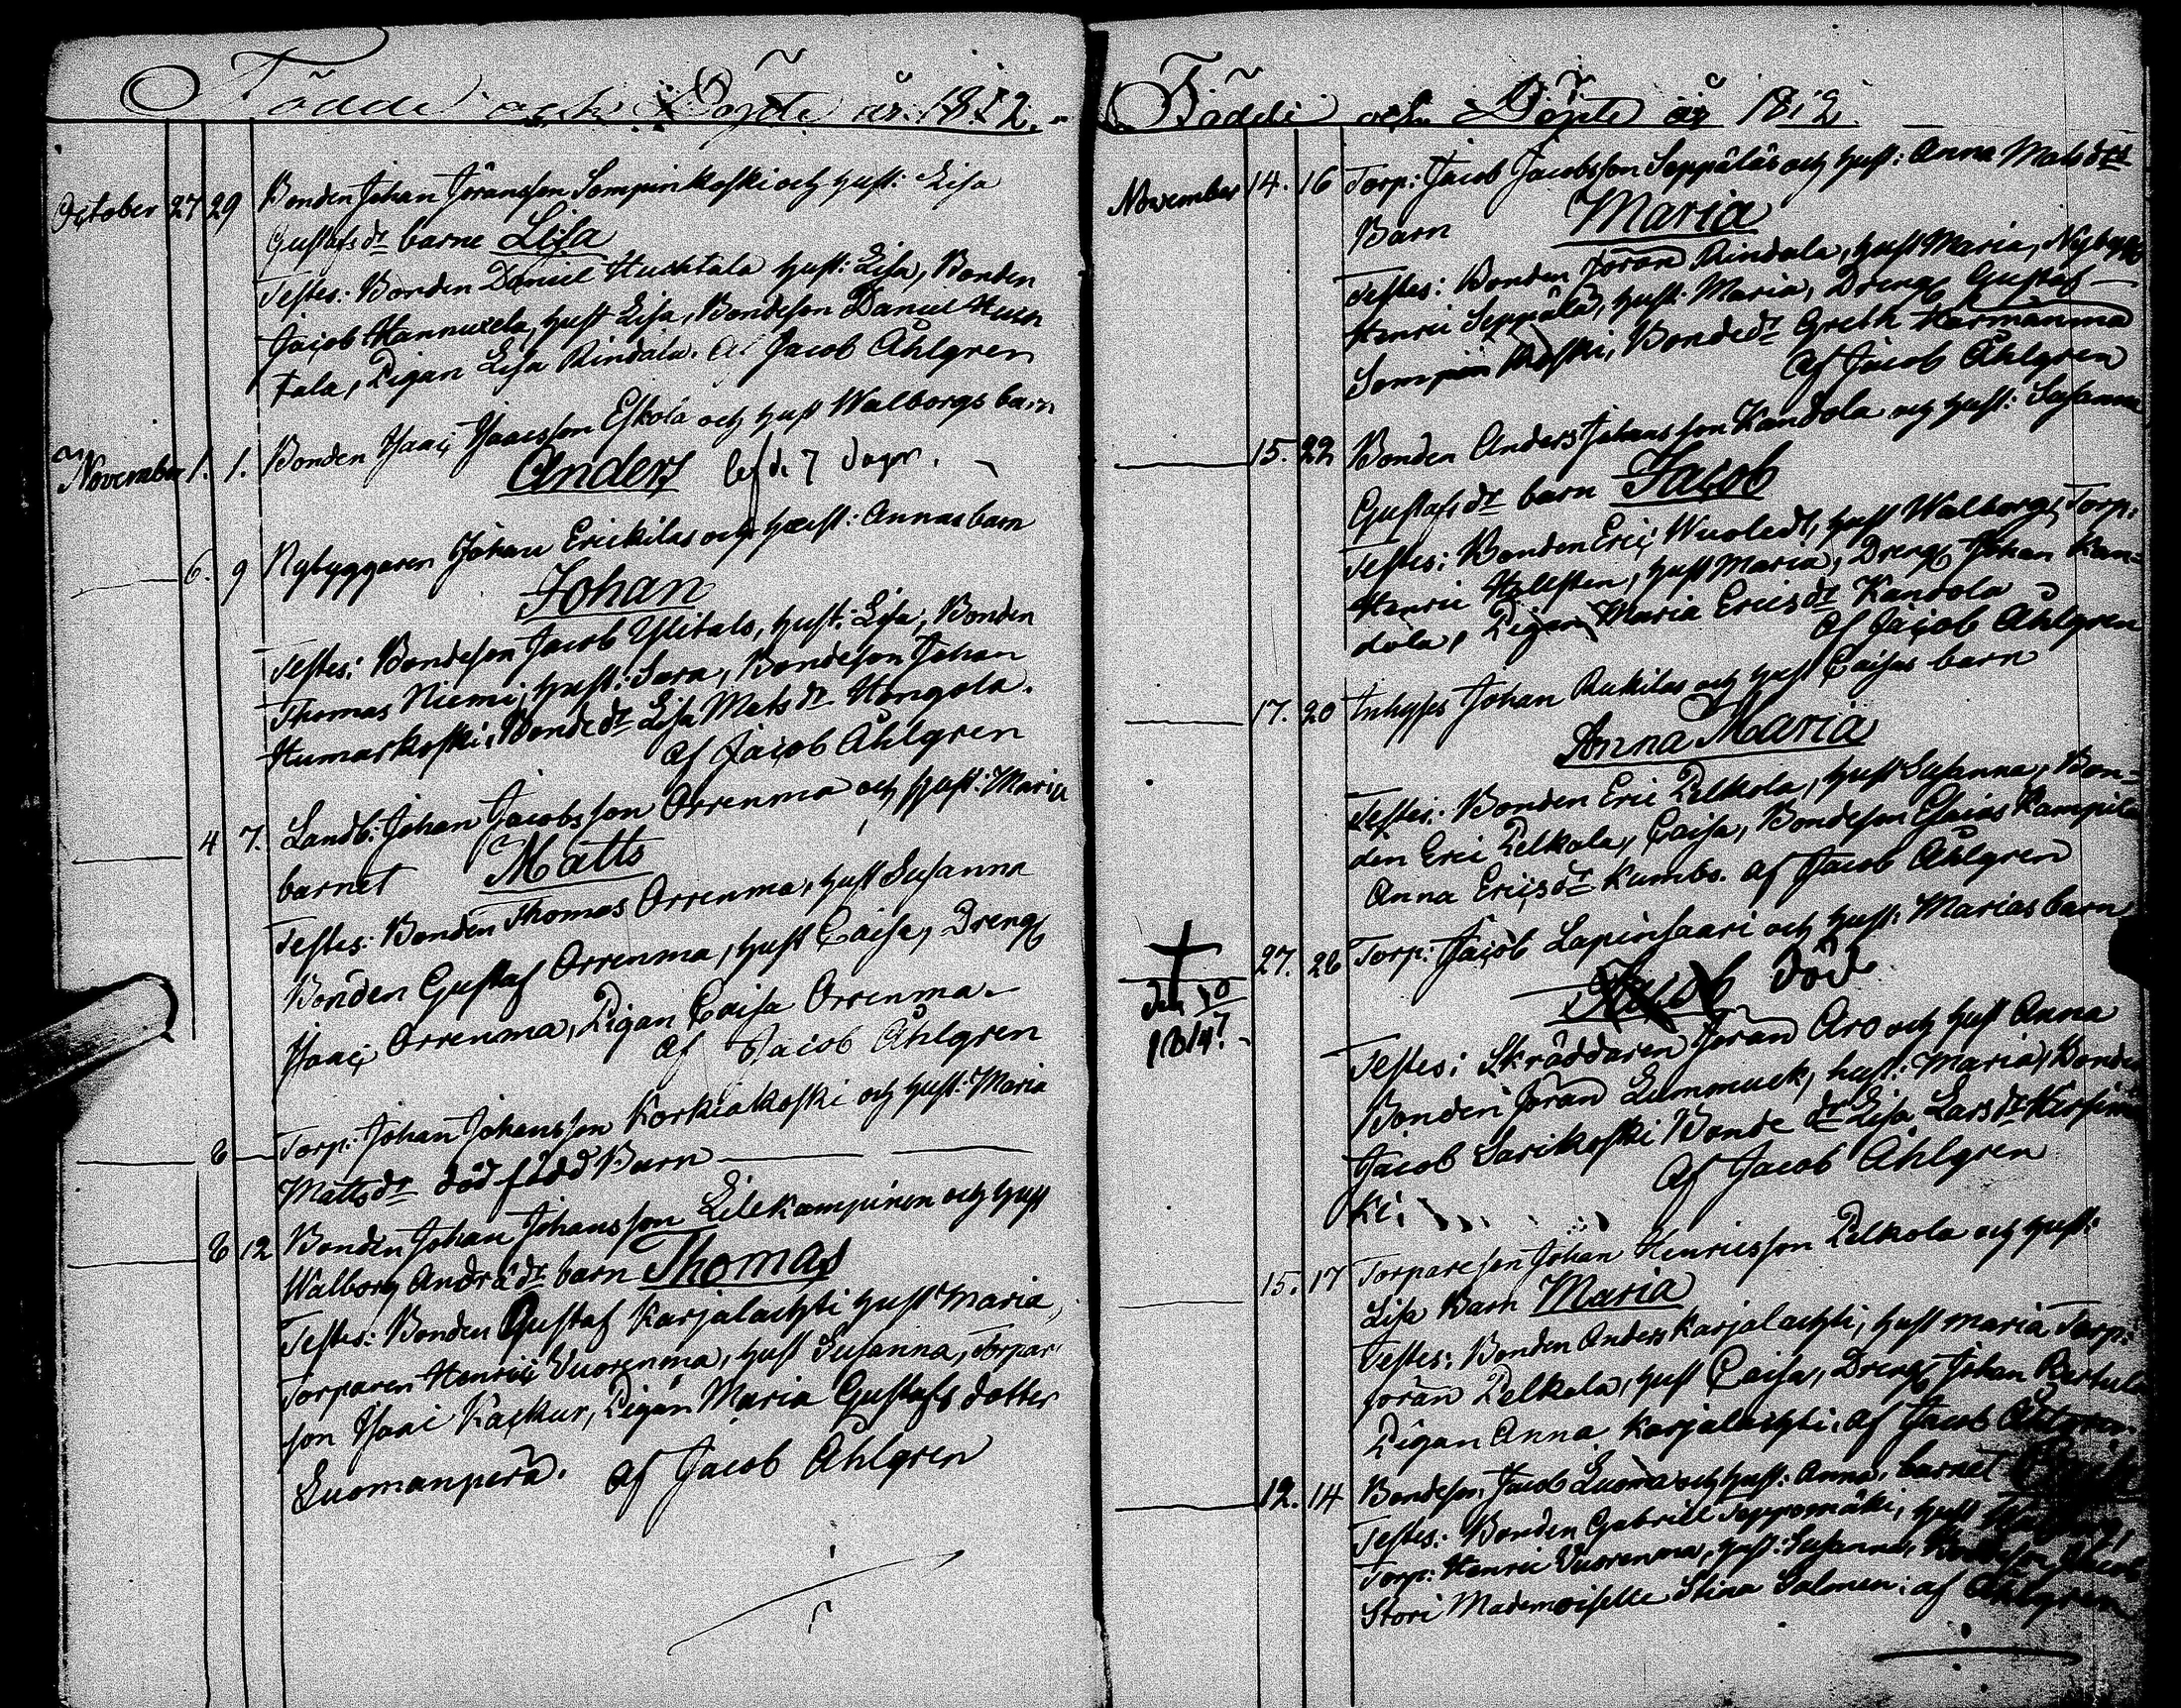 Födde och Döpte år 1812.
October 27 29 Bonden Johan Jöransson Sompinkoski och hust: Lisa
Gustafsdr barne Lisa
Testes: Bonden Daniel Huchtala hust: Lisa, Bonden
Jacob Hannuxela, hust Lisa, Bondeson Daniel Huch
tala, Pigan Lisa Rindala. af Jacob Åhlgren
November 1. 1. Bonden Isaac Isaacsson Eskola och hust Walborgs barn
Anders lefde 7 dagr.
6. 9 Nybyggaren Johan Erickilas och hust: Annas barn
Johan
Testes: Bondeson Jacob Ylitalo, hust: Lisa, Bonden
Thomas Niemi, hust: Sara, Bondeson Johan
Humaskoski, Bondedr Lisa Matsdr Hongola.
af Jacob Åhlgren
4 7. Landb: Johan Jacobsson Orrenma och hust: Maria
barnet Matts
Testes: Bonden Thomas Orrenma, hust Susanna
Bonden Gustaf Orrenma, hust Caisa, Dreng
Isaac Orrenma, Pigan Caisa Orrenma
af Jacob Åhlgren
8 Torp: Johan Johansson Korkiakoski och hust: Maria
Mattsdr död född Barn
8 12 Bonden Johan Johansson Lilekampinen och hust
Walborg Andrædr barn Thomas
Testes: Bonden Gustaf Karjalachti hust Maria,
Torparen Henric Vuorenma, hust Susanna, Torpar
son Isaac Kackur, Pigan Maria Gustafs dotter
Luomanperä. af Jacob Åhlgren
Födde och Döpte år 1812
November 14. 16 Torp: Jacob Jacobsson Seppäläs och hust: Anna Matsdrs
Barn Maria
Testes: Bonden Jöran Rindala, hust Maria, Nybygg
Henric Seppälä, hust: Maria, Dreng Gustaf
Sompinkoski, Bondedr Greth Karmanma
af Jacob Åhlgren
15. 22 Bonden Anders Johansson Kandola och hust: Susanna
Gustafsdr barn Jacob
Testes: Bonden Eric Wuoledt, hust Walborg, Torp:
Henric Hallsten, hust Maria, Dreng Johan Kan=
dola, Pigan Maria Ericsdr Kandola
af Jacob Åhlgren
17. 20 Inhyses Johan Rukilas och hust Caisas barn
Anna Maria
Testes: Bonden Eric Pelkola, hust Susanna, Bon=
den Eric Pelkola, Caisa, Bondeson Esaias Kampila
Anna Ericsdr Kumbo. af Jacob Åhlgren
27. 28 Torp: Jacob Lapinsaari och hust: Marias barn
Jacob död
Testes: Skräddaren Jöran Aro och hust Anna
Bonden Jöran Lummuck, hust: Maria, Bonde
Jacob Sarikoski Bonde dr Lisa Larsdr Kersin
ki.
af Jacob Åhlgren
15. 17 Torpareson Johan Henricsson Pelkola och hust:
Lisa Barn Maria
Testes: Bonden Anders Karjalachti, hust Maria Torp:
Jöran Pelkola, hust Caisa, Dreng Johan Rastula
Pigan Anna Karjalachti. af Jacob Åhlgren.
12. 14 Bondeson Jacob Luoma och hust: Anna, barnet
Testes: Bonden Gabriel Toppomäki, hust Walborg,
Torp: Henric Vuorenma, hust: Susanna, Bondeson Jacob
Stori Mademoiselle Stina Salmen: af Åhlgren